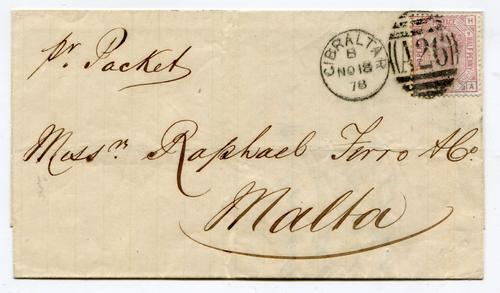 pr. Packet
GIBRALTAR
B
NO 18
78
A26
Messrs. Raphael Ferro & Co
Malta